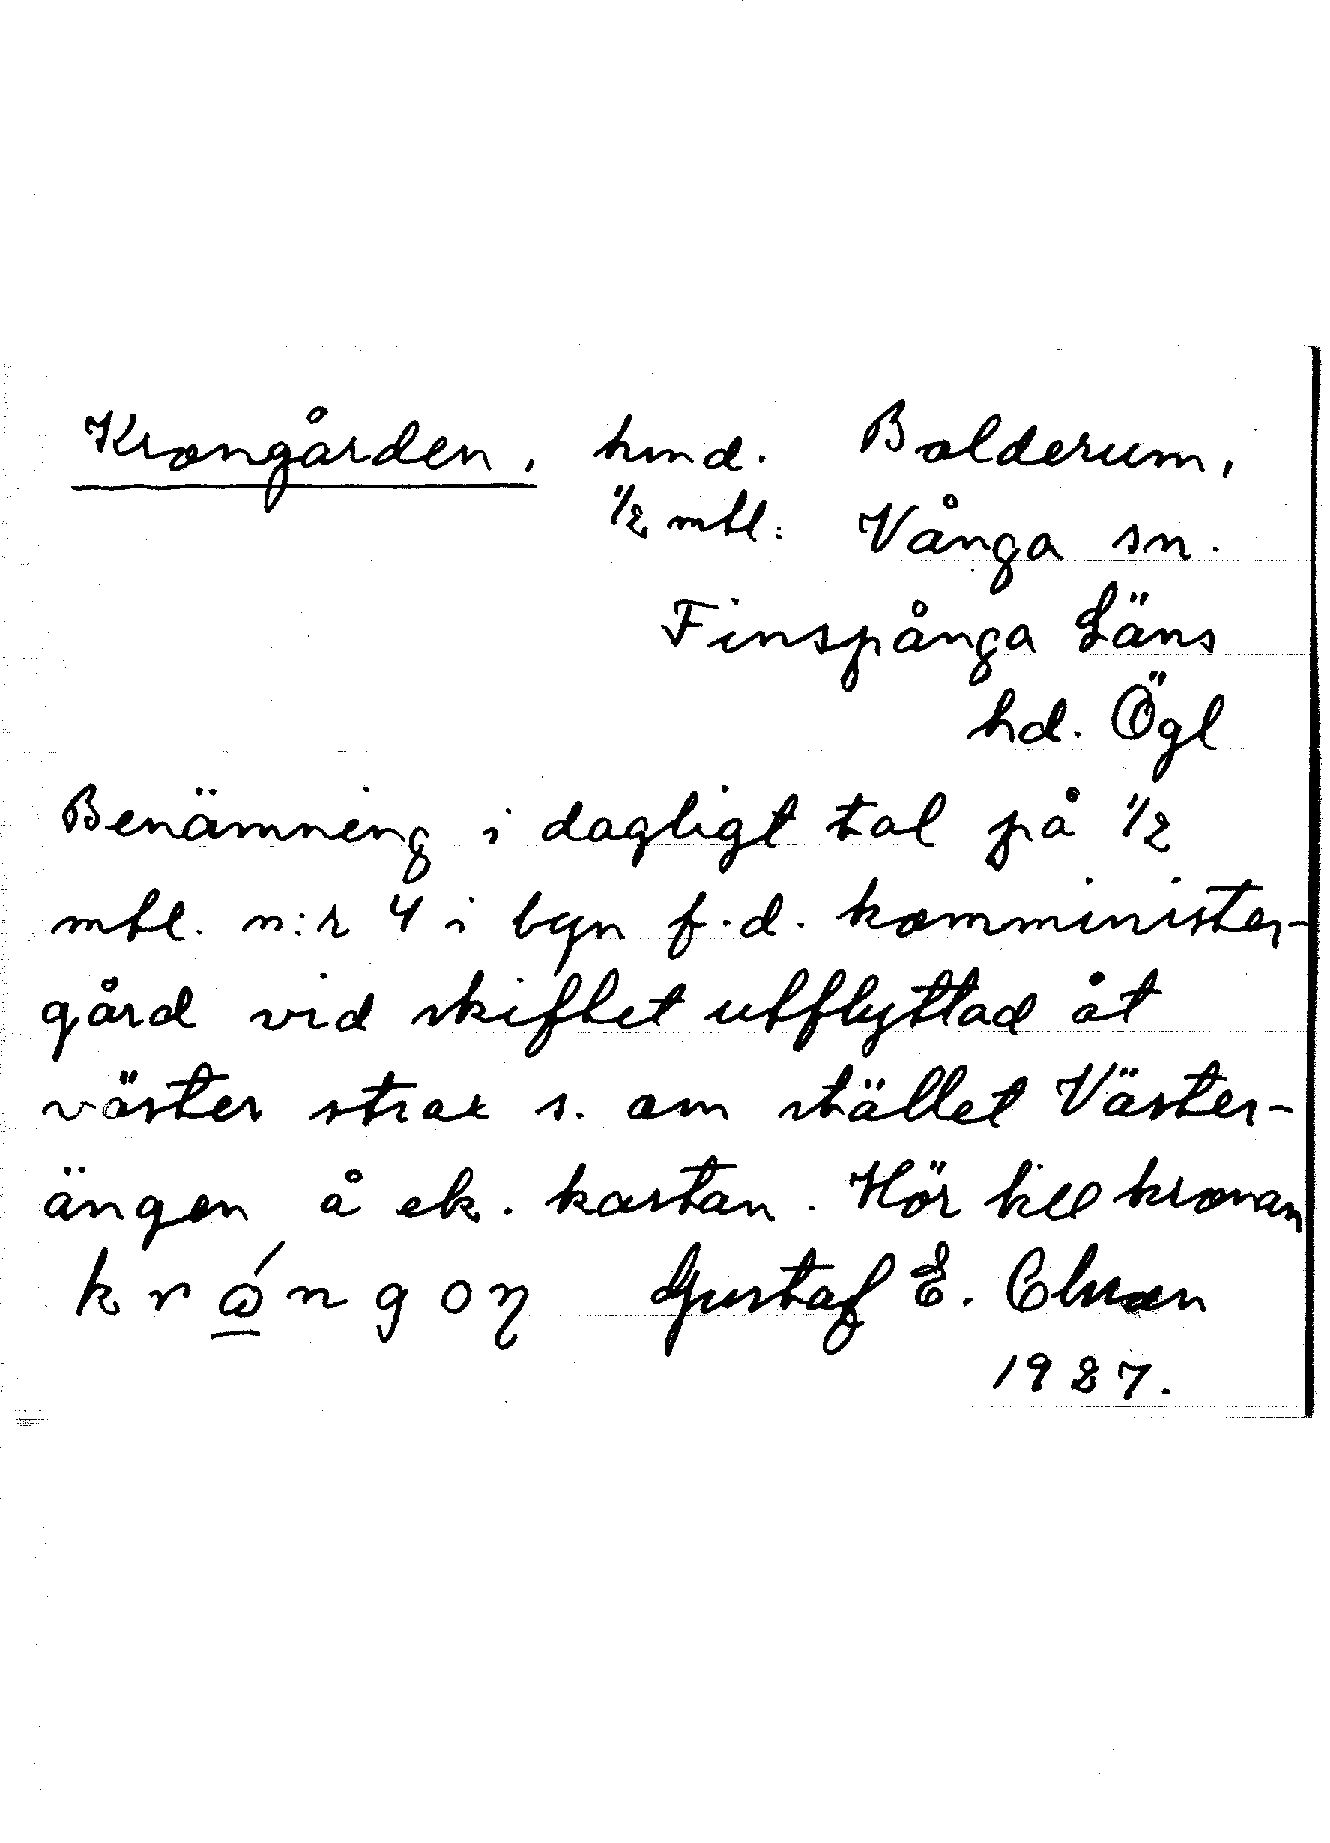 Krongården, hmd. Bolderum,
1/2 mtl. Vånga sn.
Finspånga Läns
hd. Ögl
Benämning i dagligt tal på 1/2
mtl. n:r 4 i byn f.d. komminister-
gård vid skiftet utflyttad åt
väster strax s. om stället Väster-
ängen å ek. kartan. Hör till kronan
Gustaf E.
1927.